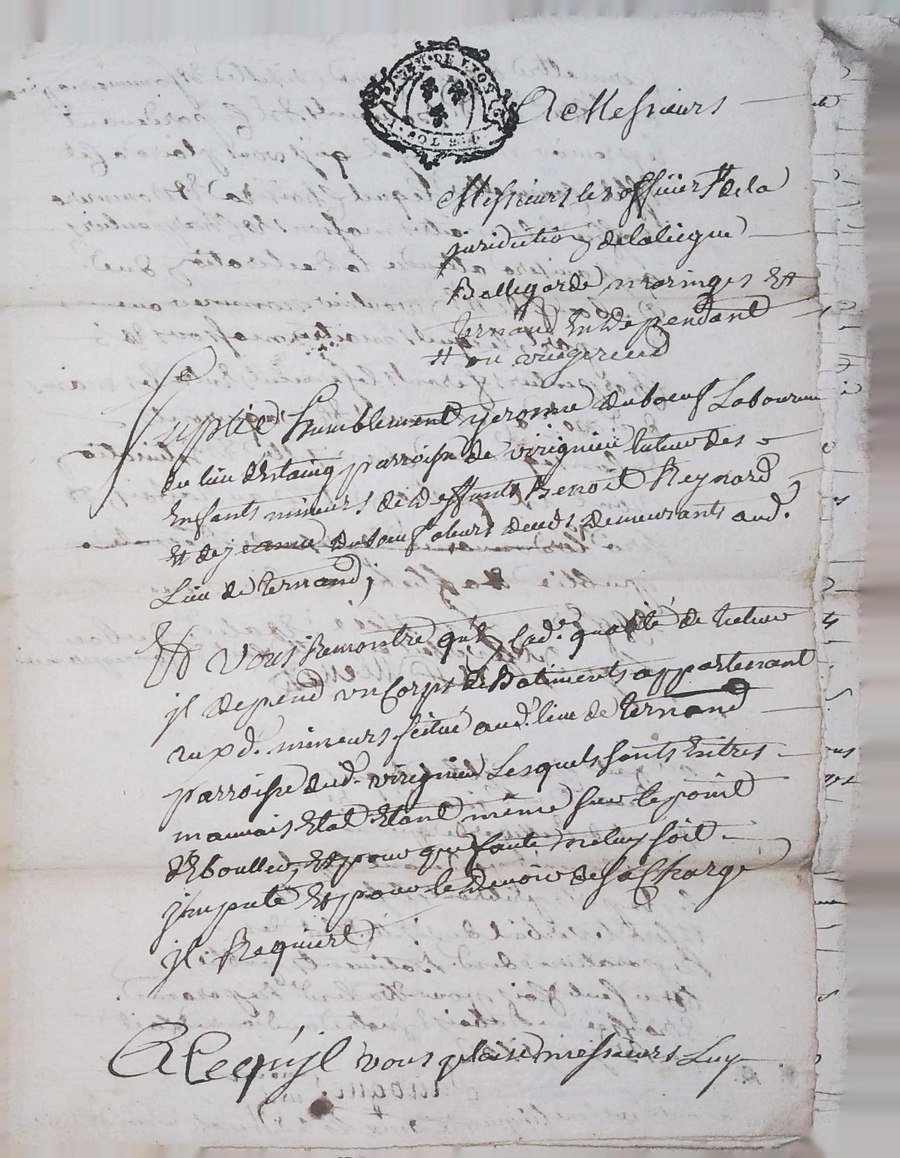 GEN. DE LYON
SOL
A Messieurs
Messieurs les officiers # de la
juridiction de laliegue
Bellegarde maringes Et
ternand En Dependant
# ou viregereend
Suplie humblement jerome duboeuf Laboureur
du lieu parroisse de virignieu tuteur des
Enfants mineurs de deffunts Benoit Reynard
Et de jeanne duboeuf aleurs deceds demeurants aud.
Lieu de ternand,
Et vous Remontre qu'En lad. qualité de tuteur
jl depend un Corps de Batiments appartenant
aux d. mineurs scitué aud. lieu de ternand
parroisse dud. virignieu Lesquels sonts Entres
mauvais Etat Etant même sur le point
d'Eboulled, Et pour que faute ne luy soit
jmputé Et pour le devoir de sa Charge
jl Requiert
A Ce qu'jl vous plaise messieurs Luy